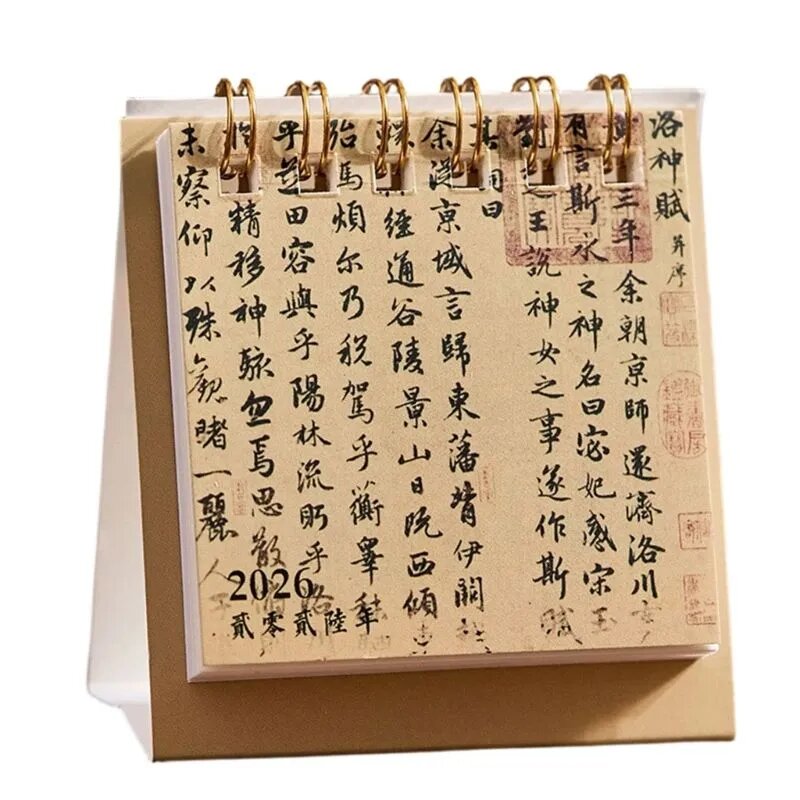 洛神賦 并序
三年余朝京師還濟洛川
有言斯水之神名曰宓妃感宋玉
對 王說神女之事遂作斯賦
其詞曰
余從京域言歸東藩背伊闕
經通谷陵景山日既西傾
殆馬煩尔乃稅駕乎蘅皋
乎芝田容與乎陽林流眄乎洛
精移神駭忽焉思散
未察仰以殊觀睹一麗人
2026
貳零貳陸年